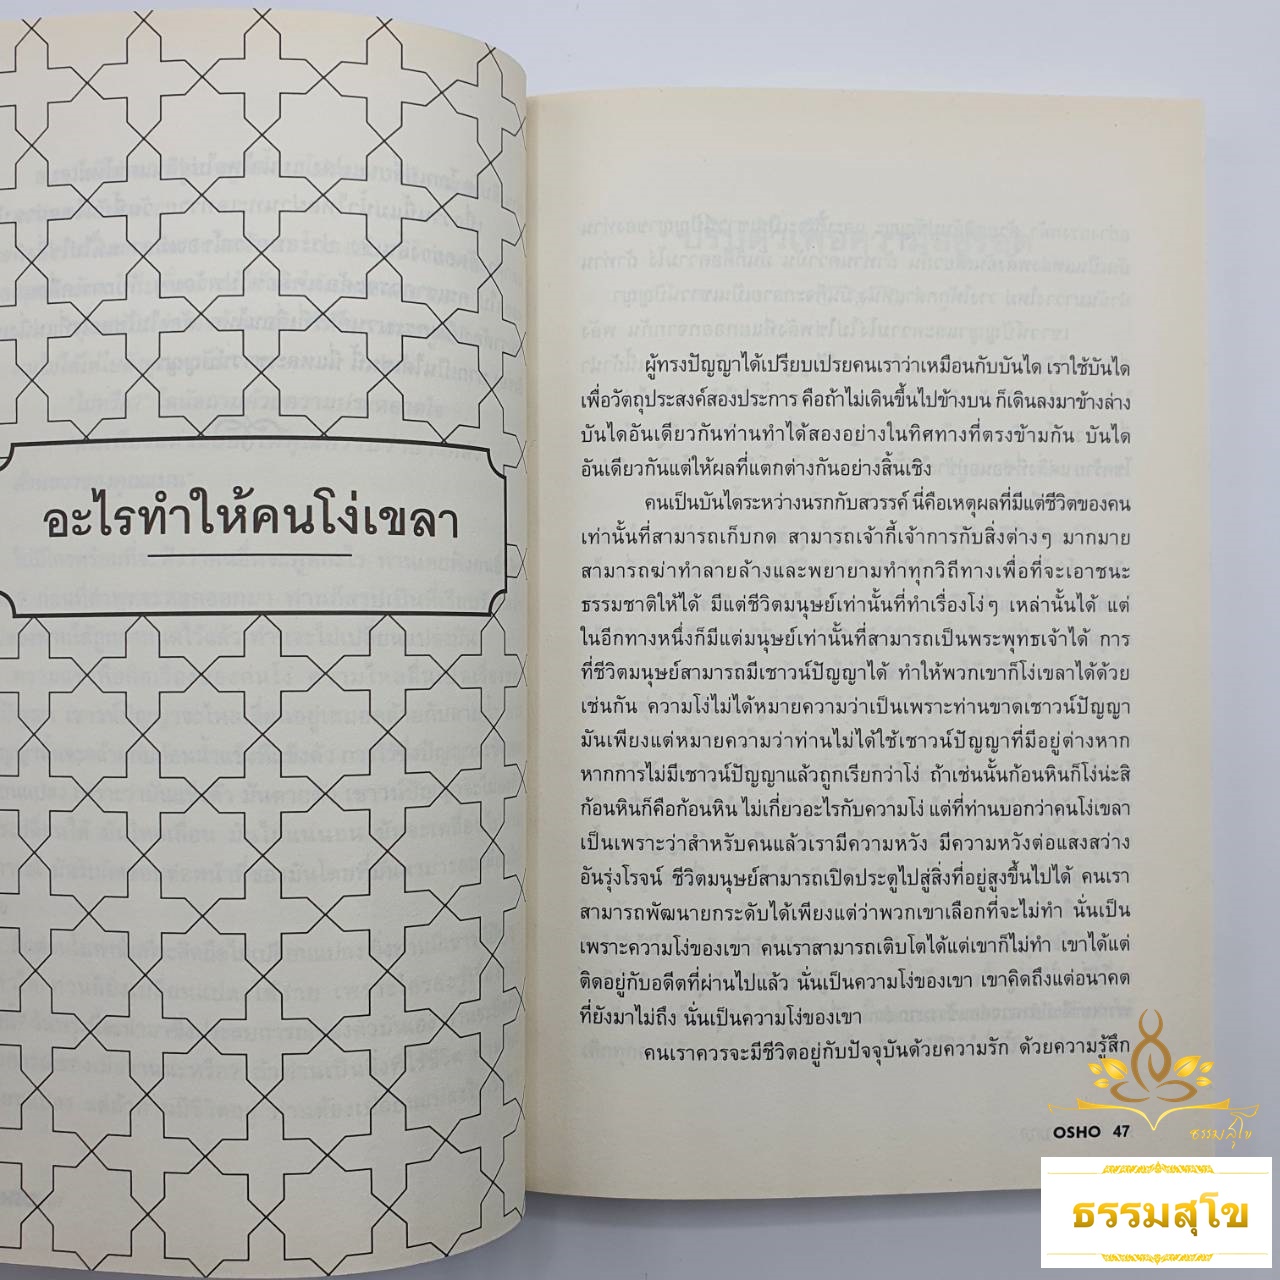 อะไรทำให้คนโง่เขลา
ผู้ทรงปัญญาได้เปรียบเปรยคนเราว่าเหมือนกับบันได เราใช้บันได
เพื่อวัตถุประสงค์สองประการ คือถ้าไม่เดินขึ้นไปข้างบน ก็เดินลงมาข้างล่าง
บันไดอันเดียวกันท่านทำได้สองอย่างในทิศทางที่ตรงข้ามกัน บันได
อันเดียวกันแต่ให้ผลที่แตกต่างกันอย่างสิ้นเชิง
คนเป็นบันไดระหว่างนรกกับสวรรค์ นี่คือเหตุผลที่มีแต่ชีวิตของคน
เท่านั้นที่สามารถเก็บกด สามารถเจ้ากี้เจ้าการกับสิ่งต่างๆ มากมาย
สามารถฆ่าทำลายล้างและพยายามทำทุกวิถีทางเพื่อที่จะเอาชนะ
ธรรมชาติให้ได้ มีแต่ชีวิตมนุษย์เท่านั้นที่ทำเรื่องโง่ๆ เหล่านั้นได้ แต่
ในอีกทางหนึ่งก็มีแต่มนุษย์เท่านั้นที่สามารถเป็นพระพุทธเจ้าได้ การ
ที่ชีวิตมนุษย์สามารถมีเชาวน์ปัญญาได้ ทำให้พวกเขาก็โง่เขลาได้ด้วย
เช่นกัน ความโง่ไม่ได้หมายความว่าเป็นเพราะท่านขาดเชาวน์ปัญญา
มันเพียงแต่หมายความว่าท่านไม่ได้ใช้เชาวน์ปัญญาที่มีอยู่ต่างหาก
หากการไม่มีเชาวน์ปัญญาแล้วถูกเรียกว่าโง่ ถ้าเช่นนั้นก้อนหินก็โง่น่ะสิ
ก้อนหินก็คือก้อนหิน ไม่เกี่ยวอะไรกับความโง่ แต่ที่ท่านบอกว่าคนโง่เขลา
เป็นเพราะว่าสำหรับคนแล้วเรามีความหวัง มีความหวังต่อแสงสว่าง
อันรุ่งโรจน์ ชีวิตมนุษย์สามารถเปิดประตูไปสู่สิ่งที่อยู่สูงขึ้นไปได้ คนเรา
สามารถพัฒนายกระดับได้เพียงแต่ว่าพวกเขาเลือกที่จะไม่ทำ นั่นเป็น
เพราะความโง่ของเขา คนเราสามารถเติบโตได้แต่เขาก็ไม่ทำ เขาได้แต่
ติดอยู่กับอดีตที่ผ่านไปแล้ว นั่นเป็นความโง่ของเขา เขาคิดถึงแต่อนาคต
ที่ยังมาไม่ถึง นั่นเป็นความโง่ของเขา
คนเราควรจะมีชีวิตอยู่กับปัจจุบันด้วยความรัก ด้วยความรู้สึก
OSHO 47
ธรรมสุโข
ธรรมสุโข